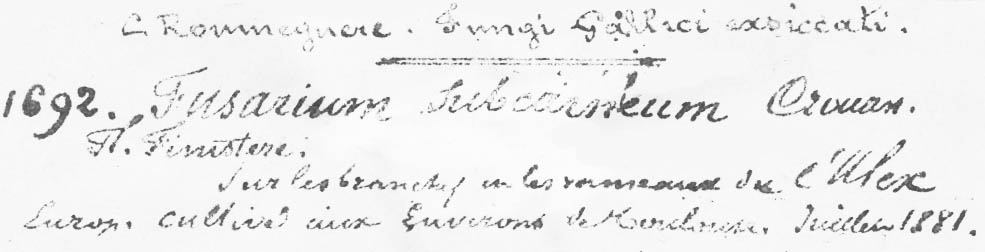 C. Roumeguere. Fungi Gallici exsiccati.
1692. Fusarium subcarneum Crouan.
Fl. Finistere.
Sur les branches et les rameaux de l'Ulex
Europ. cultivé aux Environs de Toulouse. Juillet 1881.